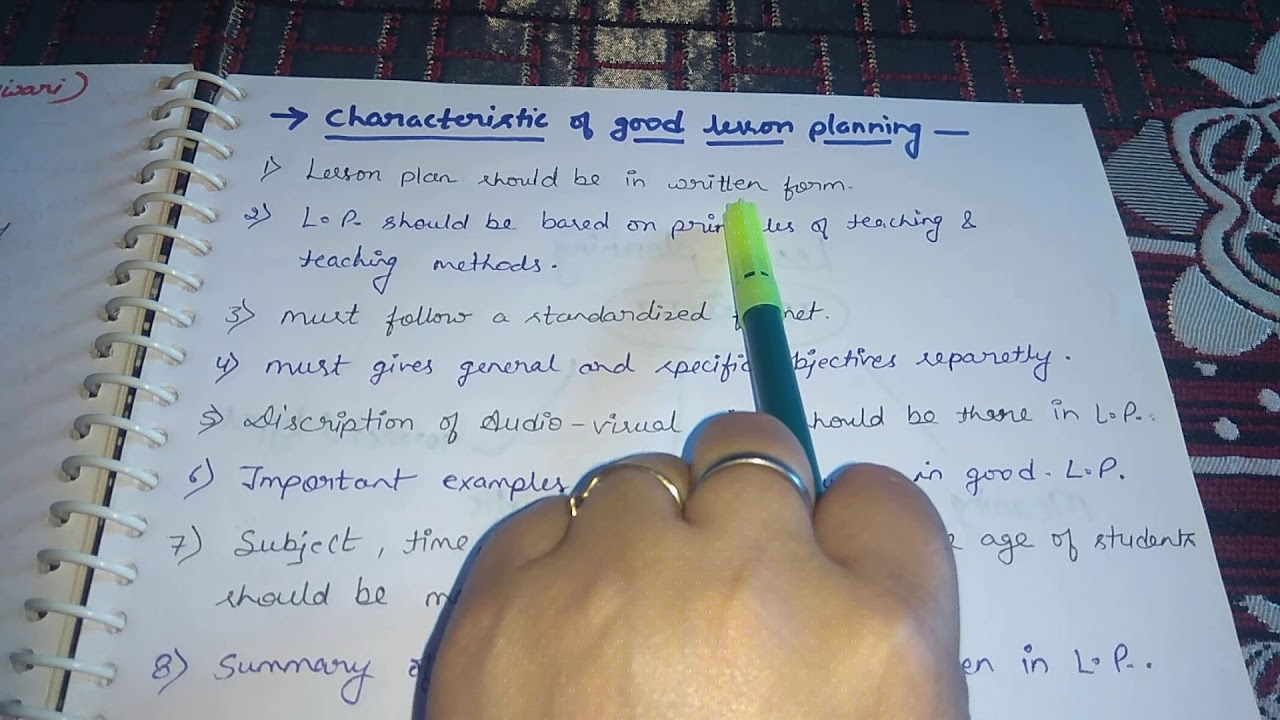 isari)
→ Characteristic of good lesson planning —
1) Lesson plan should be in written form.
2) L.P. should be based on of teaching &
teaching methods.
3) must follow a standardized
4) must gives general and specific bjectives separetly.
5) Discription of Audio-visual hould be there in L.P.
6) Important examples in good. L.P.
7) Subject, time age of students
should be
8) Summary en in L.P.